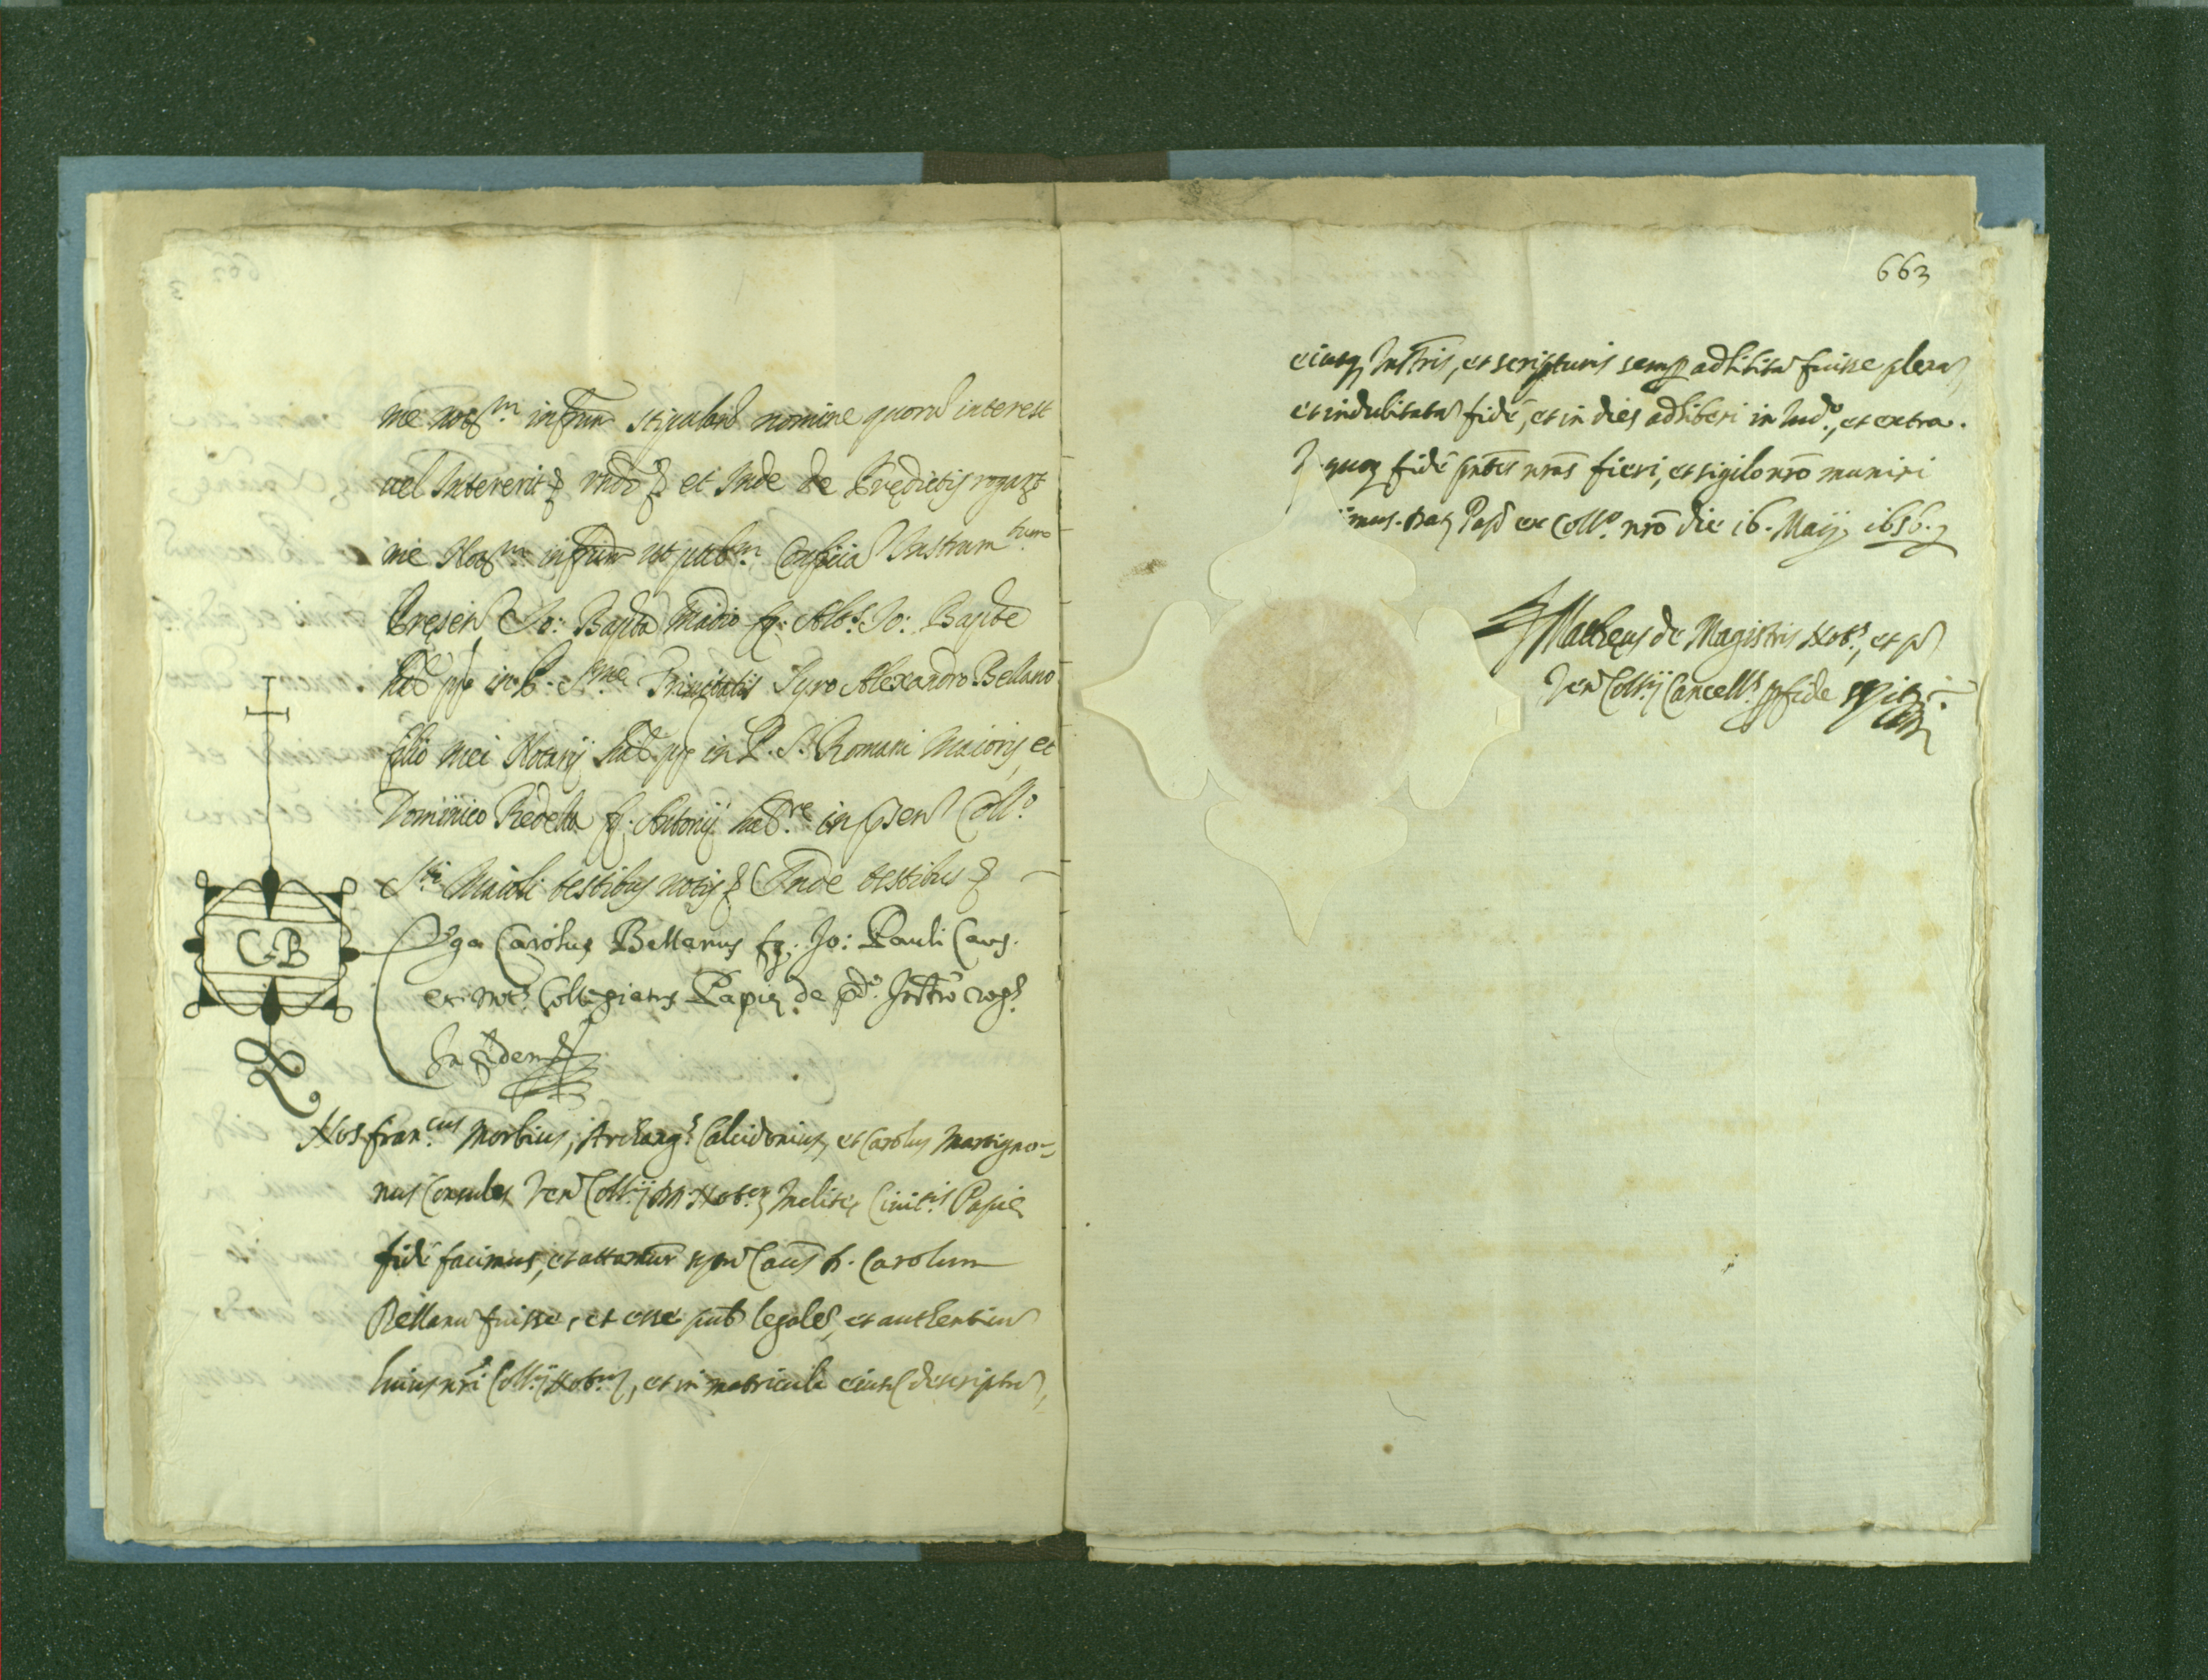 me not.m infrum stipulant nomine quorũ interest
vel Intererit & mdo & et Inde de Prędictis rogar
me Not.m infrum ut pub.m Conficia Instrum.tum
Pręsen Io: Bapta Madio fq: Alb. Io: Bapte
hab. in P. S.me Trinitatis Syro Alexandro Bellano
filio mei Notarij hab. in P. S. Romani Maioris, et
Dominico Redella fq. Antonij hab.re in psen Coll.o
S.ti Maioli testibus notis & Inde testibus &
C B
Ego Carolus Bellanus fq. Io: Pauli Caus.
et not. Collegiatus Papię de pd.o Instro rog.
In fidem &
Nos fran.cus Morbius, Archang.s Calcidonius, et Carolus Martigno=
nus Consules Ven Coll.ij DD. Not. Inclitę Ciuit.is Papię
fidẽ facimus, et attamur spm Caus D. Carolum
Bellanu fuisse, et esse pub legalẽ, et authenticu
huius nri Coll.ij Not., et in matricula eiusd descriptu,
663
eiusq Instris, et scripturis semp adhibita fuisse plena
et indubitata fidẽ, et in dies adhiberi in Iud.o, et extra.
quoq fidẽ pntes nras fieri, et sigilo nro muniri
mus. Dat Pap ex Coll.o nro die 16. Maij 1656.
Matheus de Magistris Not.s, et p
Ven Coll.ij Cancell.s p fide